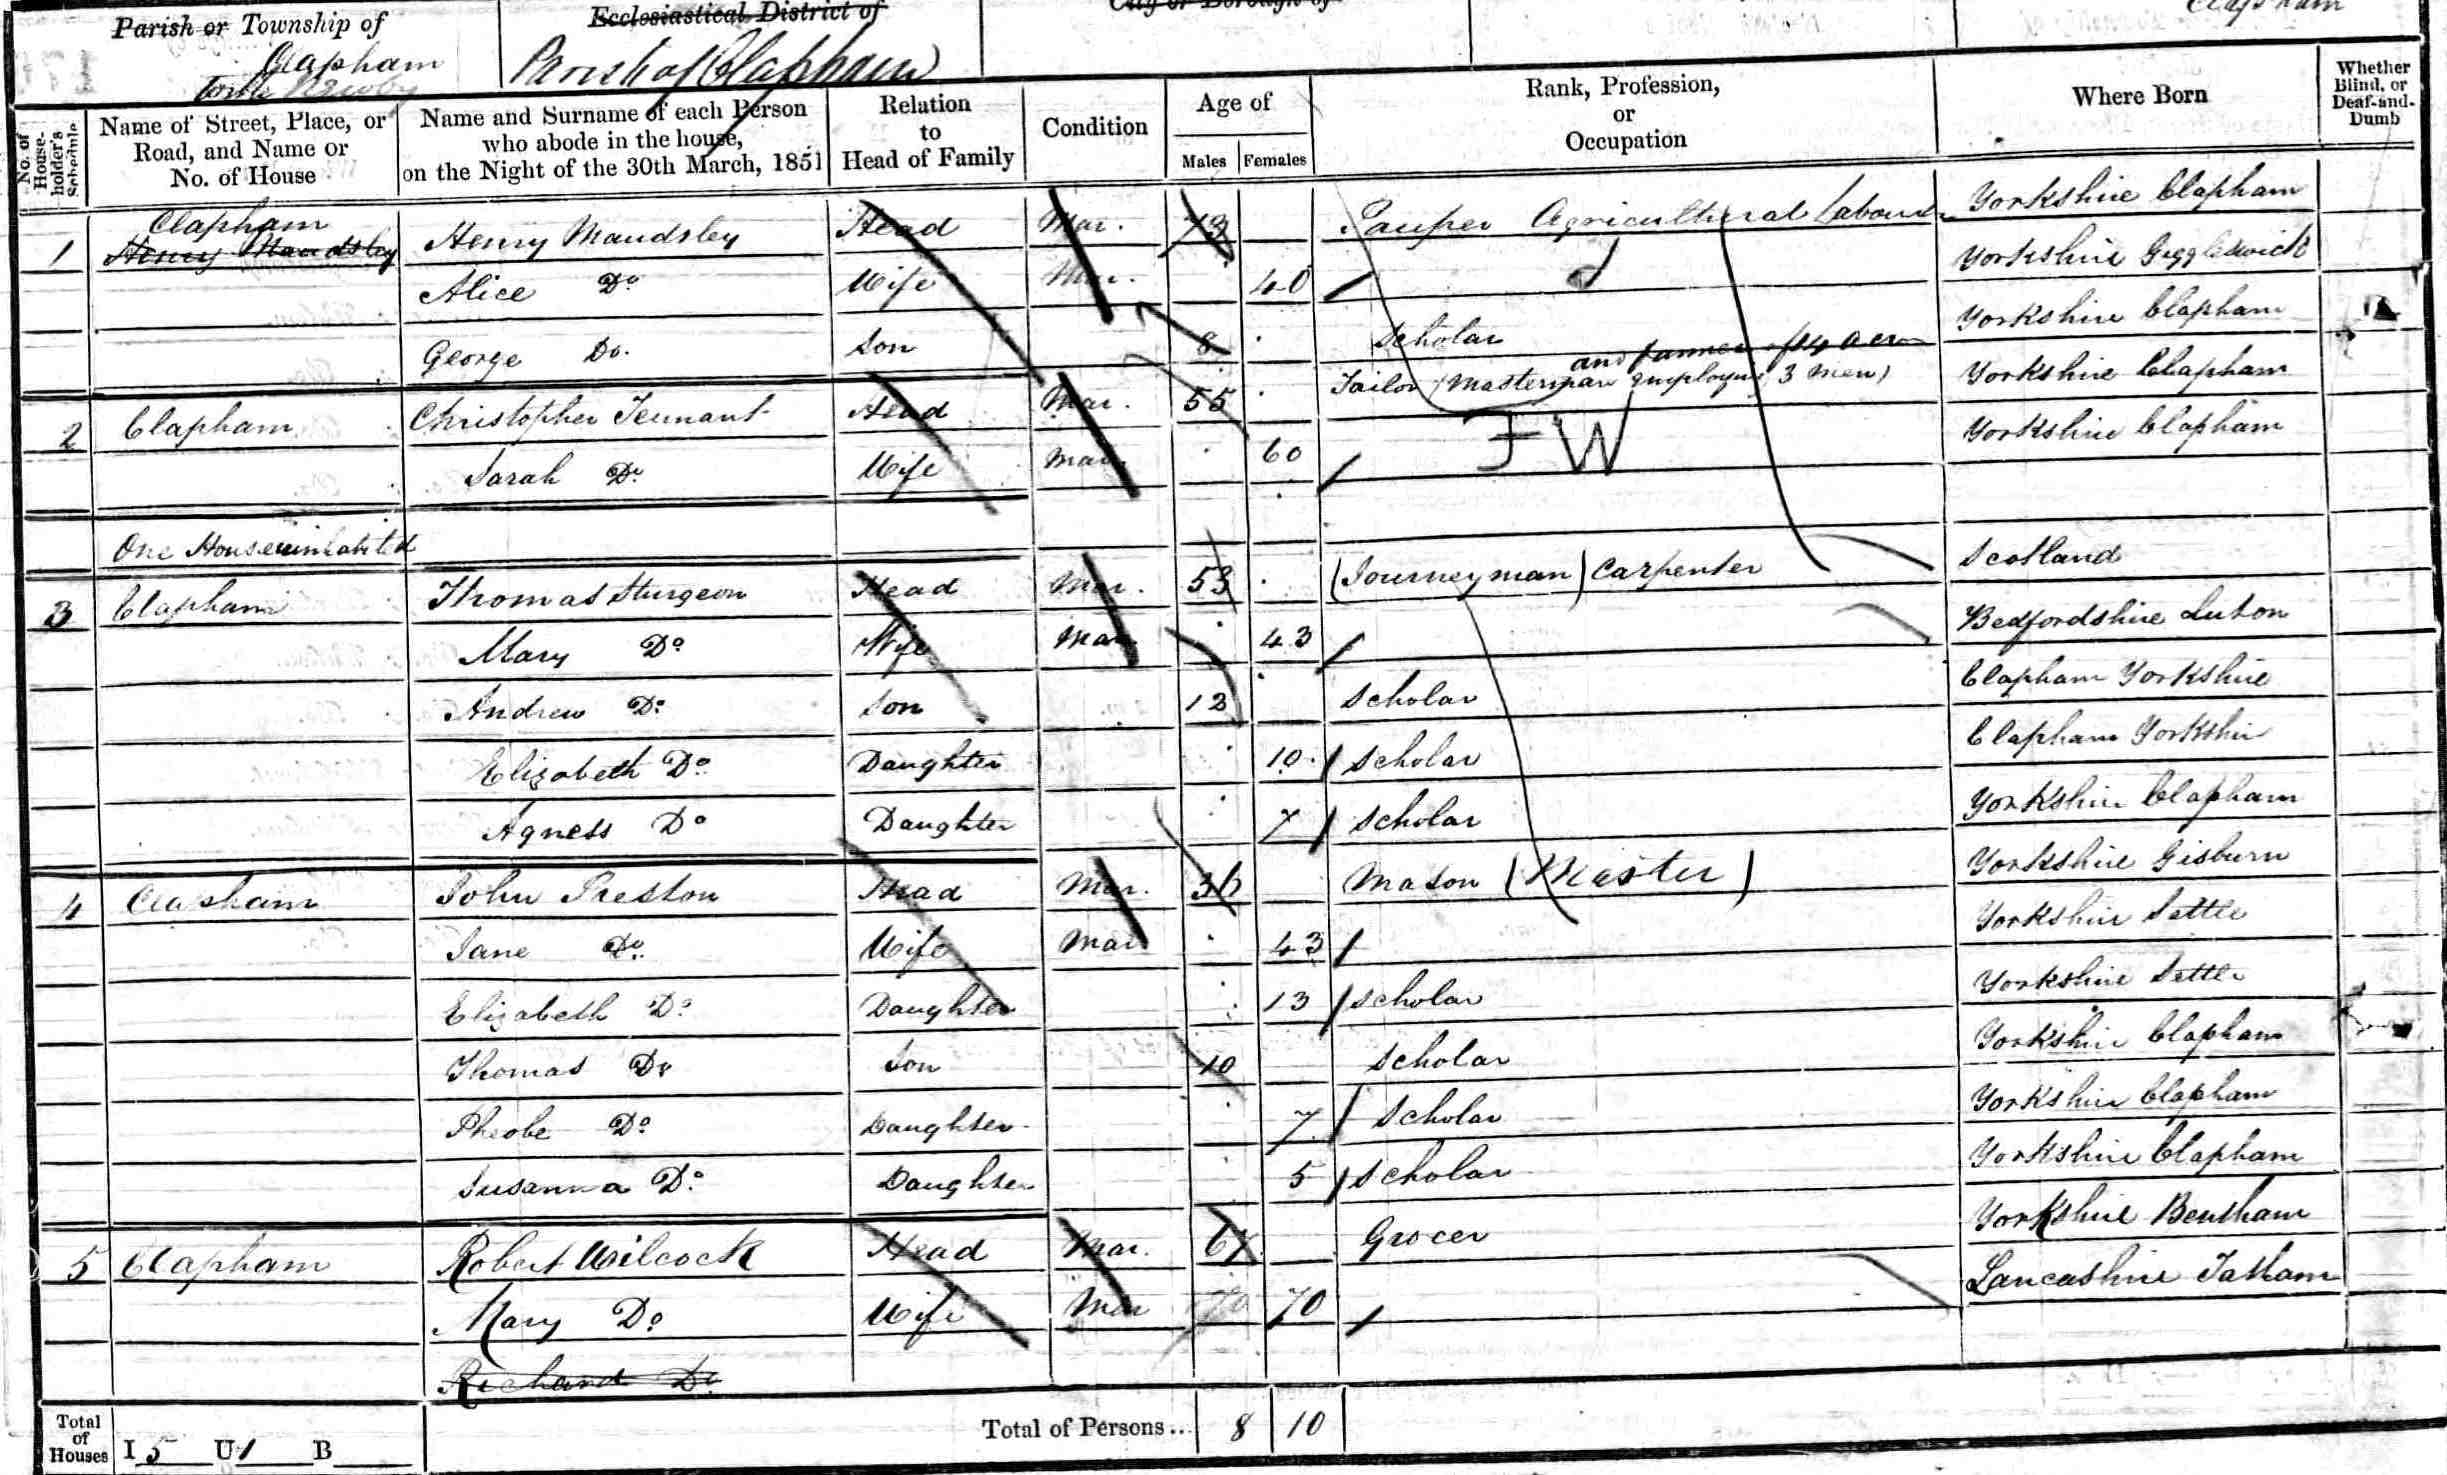 Parish or Township of
Ecclesiastical District of
City or Borough of
Clapham
Clapham
Parish of Clapham
No. of House-holder's Schedule
Name of Street, Place, or Road, and Name or No. of House
Name and Surname of each Person who abode in the house, on the Night of the 30th March, 1851
Relation to Head of Family
Condition
Age of
Males
Females
Rank, Profession, or Occupation
Where Born
Whether Blind, or Deaf-and-Dumb
Clapham
1 Henry Maudsley Henry Maudsley Head Mar. 73 Pauper Agricultural Labourer Yorkshire Clapham
Alice Do Wife Mar. 40 Yorkshire Giggleswick
George Do. Son 8 Scholar Yorkshire Clapham
and farmer of acres
2 Clapham Christopher Tennant Head Mar. 55 Tailor (Masterman employing 3 men) Yorkshire Clapham
Sarah Do Wife Mar. 60 Yorkshire Clapham
FW
One House uninhabited
3 Clapham Thomas Sturgeon Head Mar. 53 (Journeyman) Carpenter Scotland
Mary Do Wife Mar. 43 Bedfordshire Luton
Andrew Do Son 12 Scholar Clapham Yorkshire
Elizabeth Do Daughter 10 Scholar Clapham Yorkshire
Agness Do Daughter 7 Scholar Yorkshire Clapham
4 Clapham John Preston Head Mar. 36 Mason (Master) Yorkshire Gisburn
Jane Do. Wife Mar 43 Yorkshire Settle
Elizabeth Do Daughter 13 Scholar Yorkshire Settle
Thomas Do Son 10 Scholar Yorkshire Clapham
Pheobe Do Daughter 7 Scholar Yorkshire Clapham
Susanna Do Daughter 5 Scholar Yorkshire Clapham
5 Clapham Robert Wilcock Head Mar. 67 Grocer Yorkshire Bentham
Mary Do Wife Mar 70 70 Lancashire Tatham
Richard Do
Total of Houses I 5 U 1 B
Total of Persons... 8 10